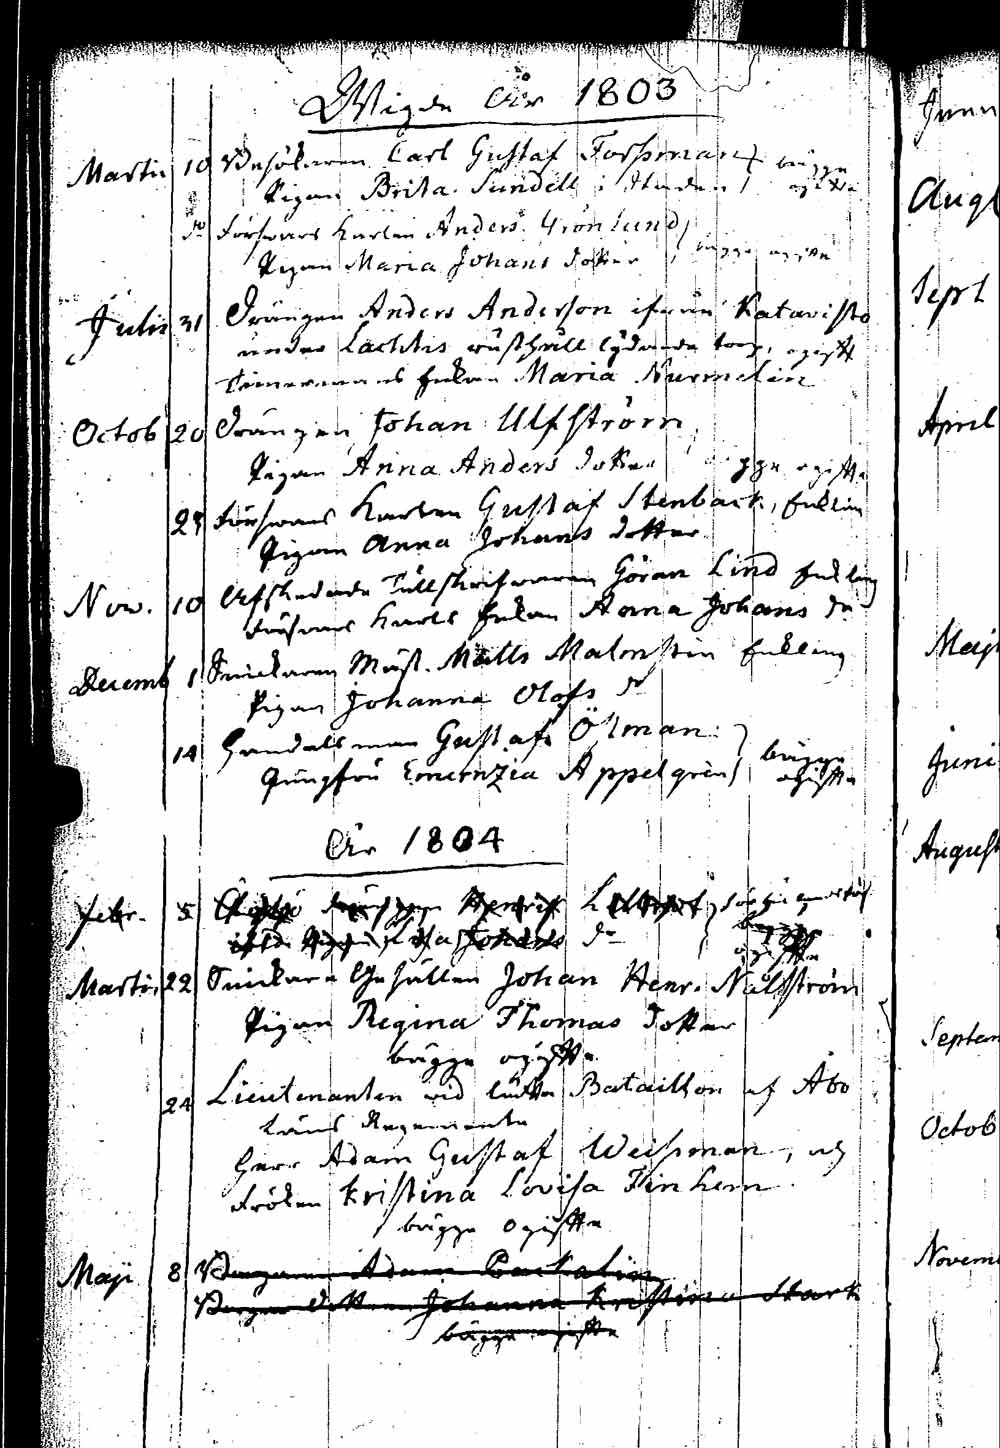 Wigde År 1803
Martii 10 Besökaren Carl Gustaf Forsman bägge
Pigan Brita Sundell i Staden ogifta
do Försvars Karlen Anders Grönlund
Pigan Maria Johans dotter bägge ogifta
Julii 31 Drängen Anders Anderson ifrån Katavisto
under Lachtis rusthåll lydande torp, ogift
Timermans Enkan Maria Nurmelin
Octob 20 Drängen Johan Ulfström
Pigan Anna Anders dotter bägge ogifta
Försvars Karlen Gustaf Stenback, Enkling
Pigan Anna Johans dotter
Nov. 10 Afskedade Tullskrifvaren Göran Lind Enkling
Försvars Karls Enkan Anna Johans dr
Decemb 1 Snickaren Mäst. Matts Malmstin Enkling
Pigan Johanna Olofs dr
14 Handelsman Gustaf Öhman
Jungfru Emernzia Appelgrén bägge ogifta
År 1804
Febr. 5 Henrik
Johans dr bägge
ogifta
Martii 22 Snickare Gesällen Johan Henr. Nällström
Pigan Regina Thomas dotter
bägge ogifta
24 Lieutenanten vid lätta Bataillon af Åbo
Läns Regemente
Herr Adam Gustaf Weisman, och
Fröken Kristina Lovisa Finhem
bägge ogifta
Maji 8 Adam
Johanna Kristina Stark
bägge ogifta
Junii
Aug
Sept
April
Maji
Juni
August
Septem
Octob
Novem